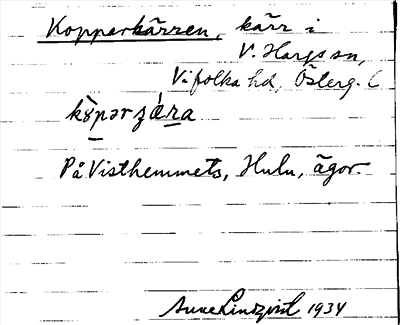 Kopparkärren, kärr i
V. Hargs sn,
Vifolka hd, Österg. l
På Visthemmets, Hulu, ägor.
Sune Lindqvist 1934